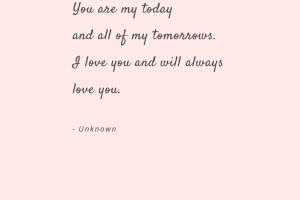 You are my today
and all of my tomorrows.
I love you and will always
love you.
- Unknown